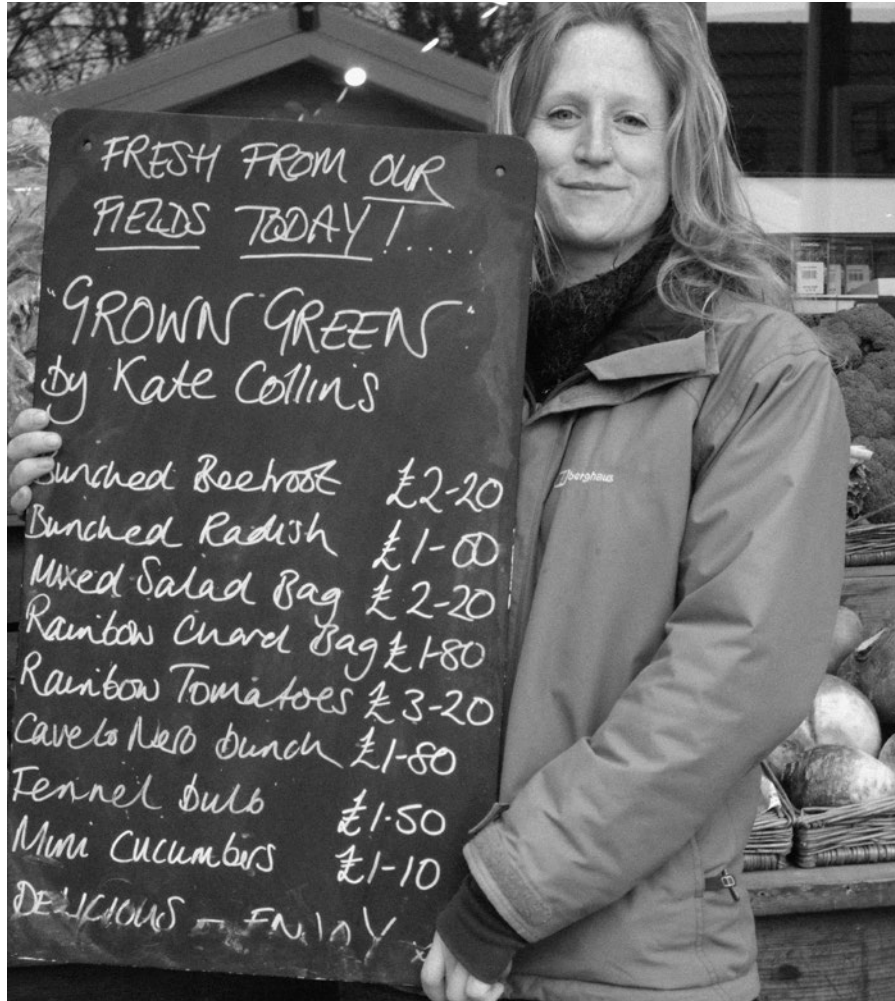 FRESH FROM OUR
FIELDS TODAY!....
"GROWN GREEN"
by Kate Collins
Bunched Beetroot £2-20
Bunched Radish £1-00
Mixed Salad Bag £2-20
Rainbow Chard Bag £1-80
Rainbow Tomatoes £3-20
Cavelo Nero bunch £1-80
Fennel bulb £1-50
Mini Cucumbers £1-10
DELICIOUS - ENJOY x
berghaus